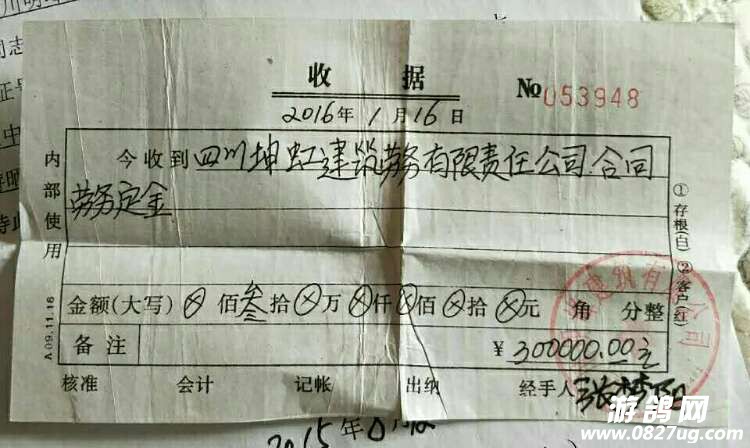 收 据
№ 053948
2016年1月16日
今收到四川坤虹建筑劳务有限责任公司.合同
劳务定金
内部使用
①存根(白) ②客户(红)
金额(大写) ⊗ 佰 叁 拾 ⊗ 万 ⊗ 仟 ⊗ 佰 ⊗ 拾 ⊗ 元 角 分整
备 注
¥ 300000.00元
A 09.11.16
核准 会计 记帐 出纳 经手人
2015年
游鸽网
www.0827ug.com